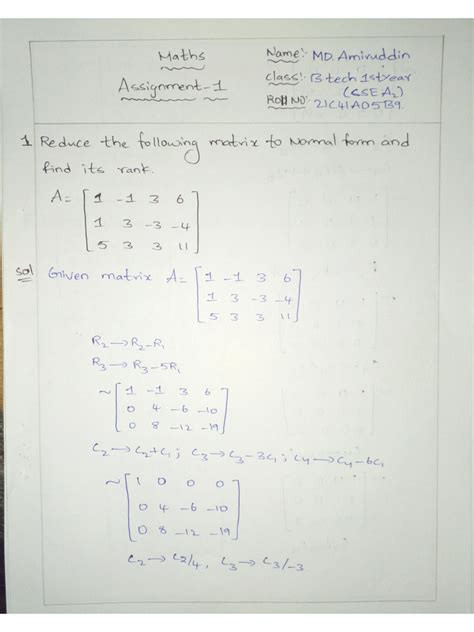 Maths
Assignment-1
Name: MD. Amiruddin
Class: B tech 1st year
(CSE A2)
Roll NO: 21C41A05B9.
1. Reduce the following matrix to Normal form and
find its rank.
A= [1 -1 3 6
1 3 -3 -4
5 3 3 11]
Sol Given matrix A= [1 -1 3 6
1 3 -3 -4
5 3 3 11]
R2→R2-R1
R3→R3-5R1
~[1 -1 3 6
0 4 -6 -10
0 8 -12 -19]
C2→C2+C1; C3→C3-3C1; C4→C4-6C1
~[1 0 0 0
0 4 -6 -10
0 8 -12 -19]
C2→C2/4, C3→C3/-3